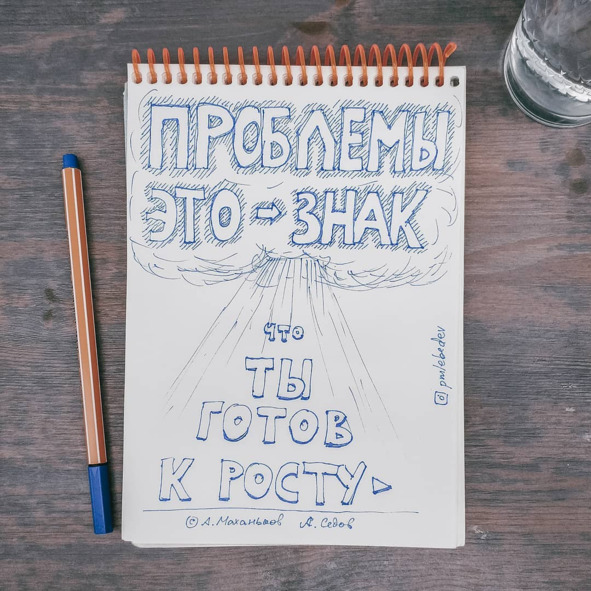 ПРОБЛЕМЫ
ЭТО → ЗНАК
что
ТЫ
ГОТОВ
К РОСТУ
© А. Маханьков А. Седов
pmlebedev